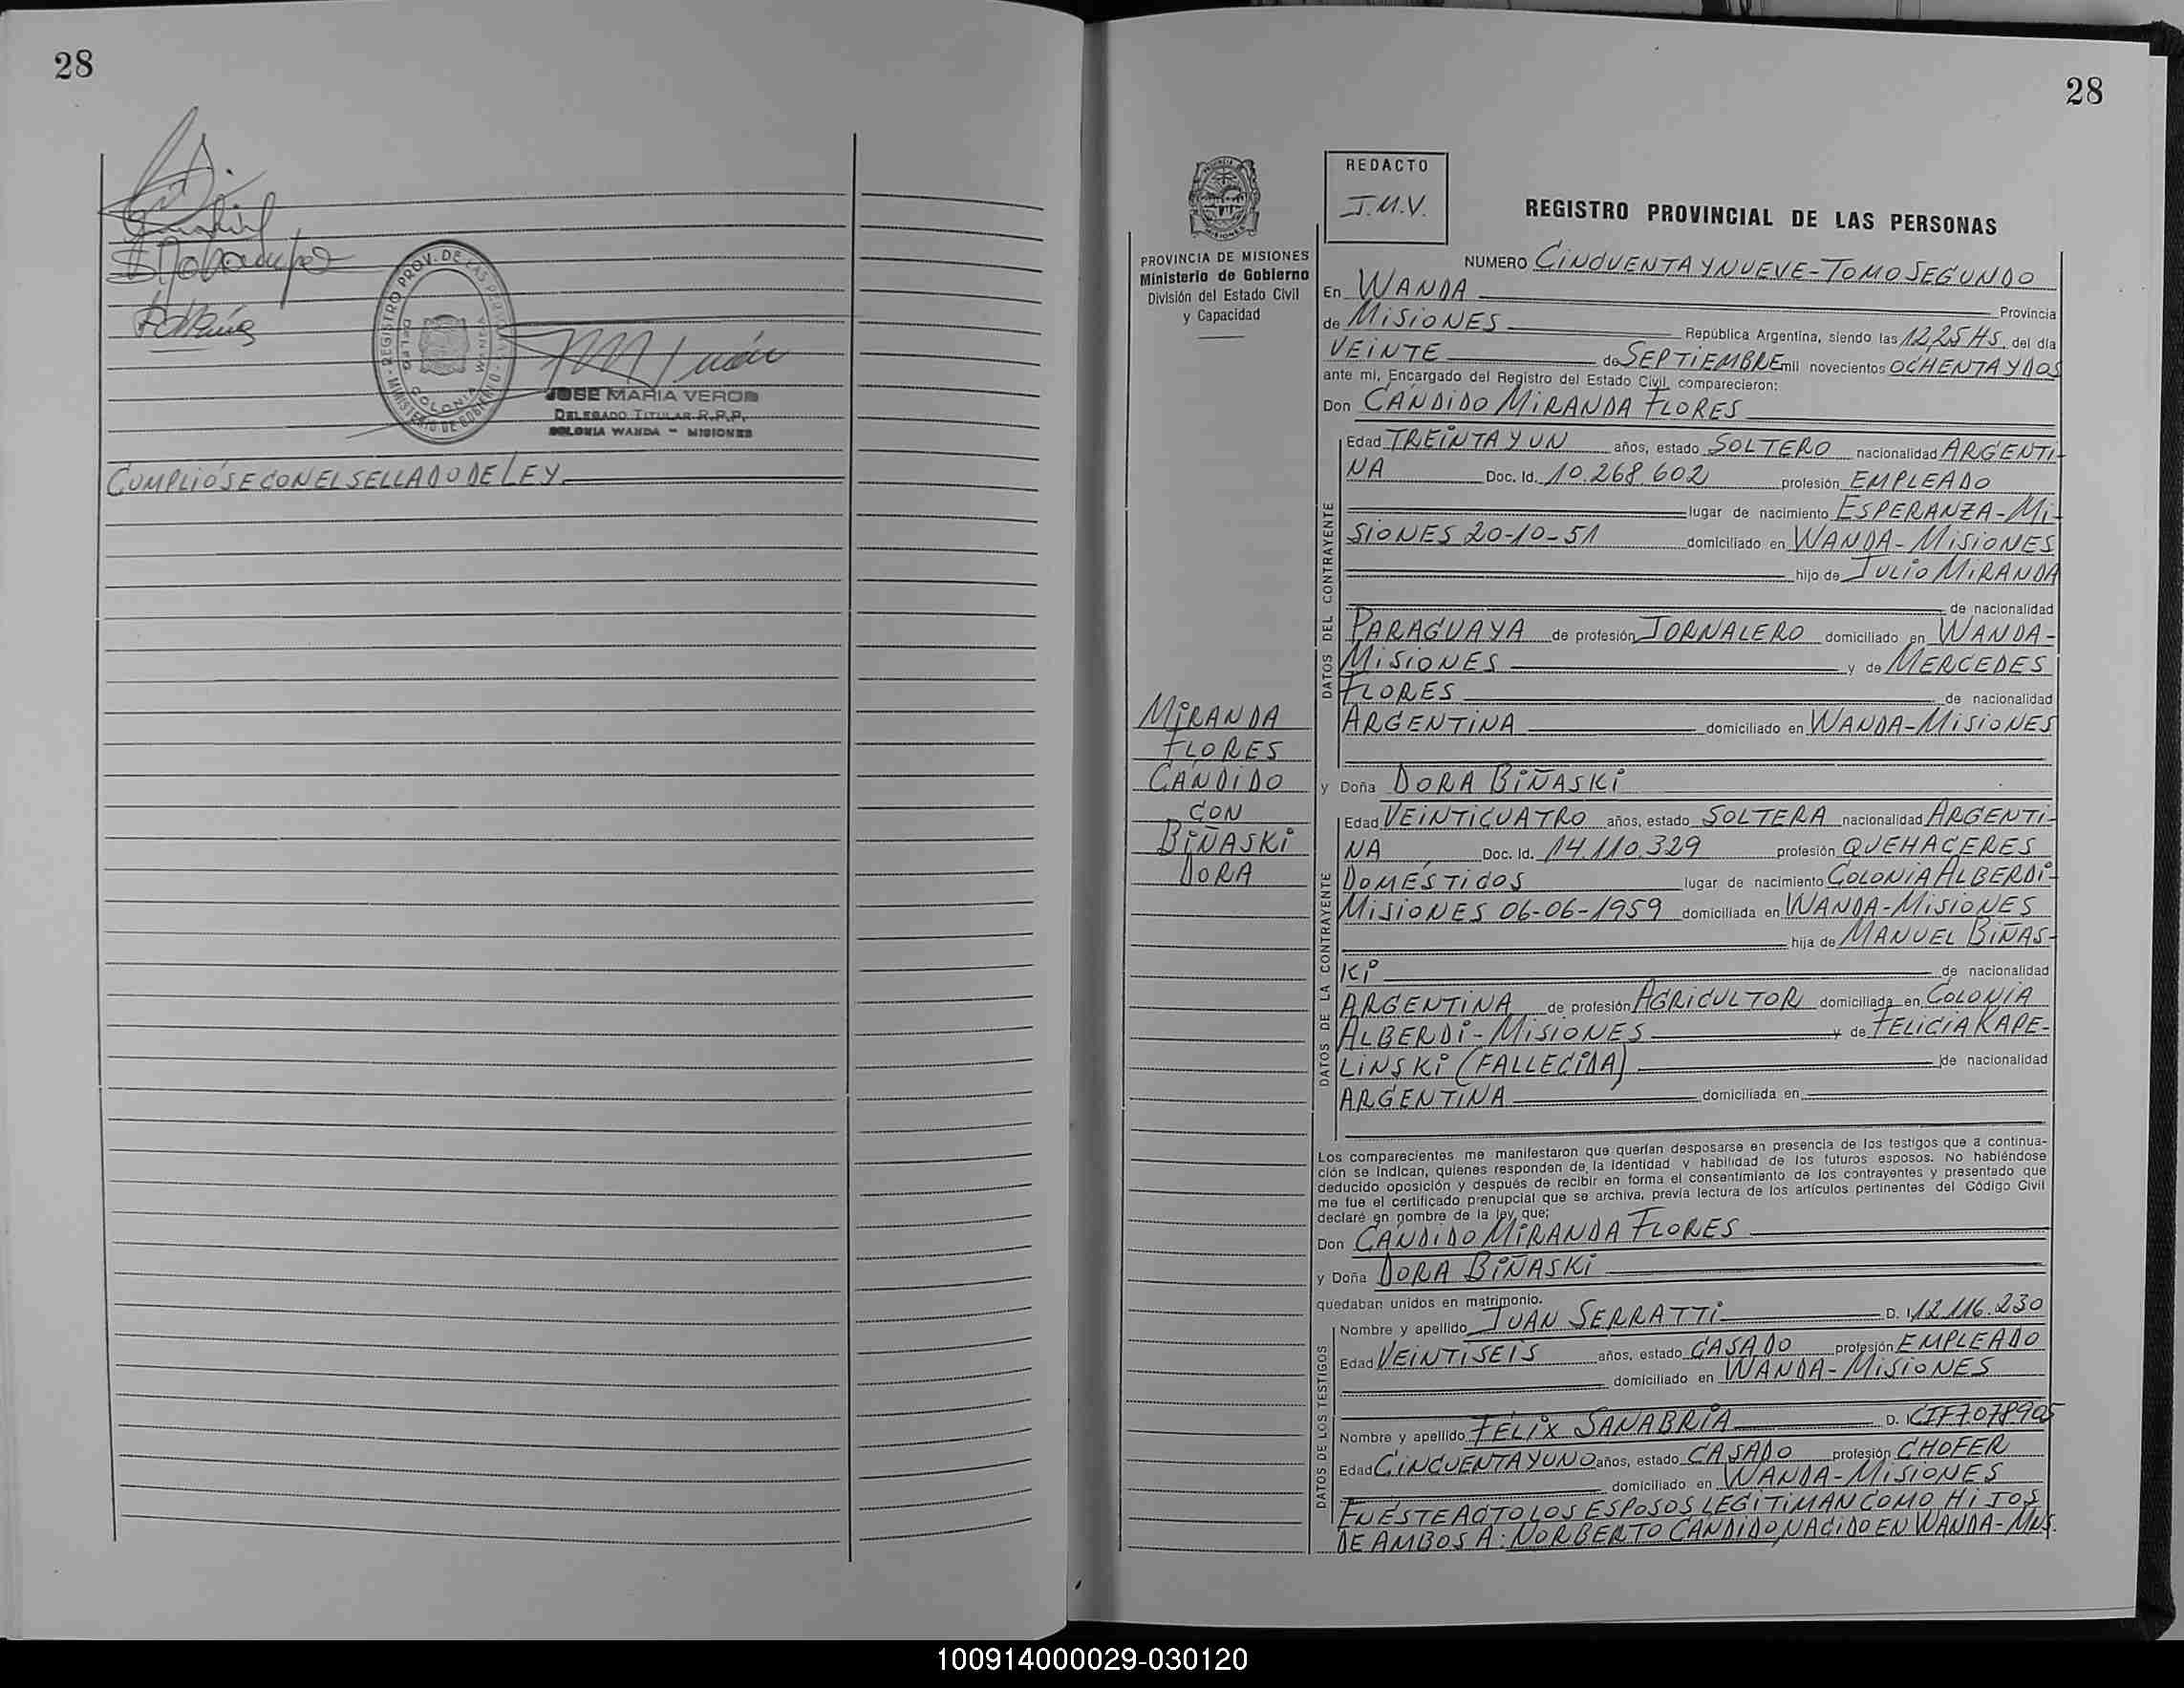 28
REGISTRO PROV. DE LAS PERSONAS
COLONIA WANDA
MINISTERIO DE GOBIERNO
JOSE MARIA VERON
DELEGADO TITULAR R.P.P.
COLONIA WANDA - MISIONES
CUMPLIÓSE CON EL SELLADO DE LEY.
28
REDACTO
J.M.V.
REGISTRO PROVINCIAL DE LAS PERSONAS
PROVINCIA DE MISIONES
Ministerio de Gobierno
División del Estado Civil
y Capacidad
MIRANDA
FLORES
CÁNDIDO
CON
BIÑASKI
DORA
NUMERO CINCUENTA Y NUEVE - TOMO SEGUNDO
En WANDA Provincia
de MISIONES República Argentina, siendo las 12,25 HS. del día
VEINTE de SEPTIEMBRE mil novecientos OCHENTA Y DOS
ante mí, Encargado del Registro del Estado Civil, comparecieron:
Don CÁNDIDO MIRANDA FLORES
DATOS DEL CONTRAYENTE
Edad TREINTA Y UN años, estado SOLTERO nacionalidad ARGENTI-
NA Doc. Id. 10.268.602 profesión EMPLEADO
lugar de nacimiento ESPERANZA - MI-
SIONES 20-10-51 domiciliado en WANDA - MISIONES
hijo de JULIO MIRANDA
de nacionalidad
PARAGUAYA de profesión JORNALERO domiciliado en WANDA -
MISIONES y de MERCEDES
FLORES de nacionalidad
ARGENTINA domiciliado en WANDA - MISIONES
y Doña DORA BIÑASKI
DATOS DE LA CONTRAYENTE
Edad VEINTICUATRO años, estado SOLTERA nacionalidad ARGENTI-
NA Doc. Id. 14.110.329 profesión QUEHACERES
DOMÉSTICOS lugar de nacimiento COLONIA ALBERDI -
MISIONES 06-06-1959 domiciliada en WANDA - MISIONES
hija de MANUEL BIÑAS-
KI de nacionalidad
ARGENTINA de profesión AGRICULTOR domiciliada en COLONIA
ALBERDI - MISIONES y de FELICIA KAPE-
LINSKI (FALLECIDA) de nacionalidad
ARGENTINA domiciliada en
Los comparecientes me manifestaron que querían desposarse en presencia de los testigos que a continua-
ción se indican, quienes responden de la identidad y habilidad de los futuros esposos. No habiéndose
deducido oposición y después de recibir en forma el consentimiento de los contrayentes y presentado que
me fue el certificado prenupcial que se archiva, previa lectura de los artículos pertinentes del Código Civil
declaré en nombre de la ley que;
Don CÁNDIDO MIRANDA FLORES
y Doña DORA BIÑASKI
quedaban unidos en matrimonio.
DATOS DE LOS TESTIGOS
Nombre y apellido JUAN SERRATTI D. I. 12.116.230
Edad VEINTISEIS años, estado CASADO profesión EMPLEADO
domiciliado en WANDA - MISIONES
Nombre y apellido FÉLIX SANABRIA D. I. CIF7.078905
Edad CINCUENTA Y UNO años, estado CASADO profesión CHOFER
domiciliado en WANDA - MISIONES
EN ESTE ACTO LOS ESPOSOS LEGITIMAN COMO HIJOS
DE AMBOS A: NORBERTO CANDIDO, NACIDO EN WANDA - MNS.
100914000029-030120